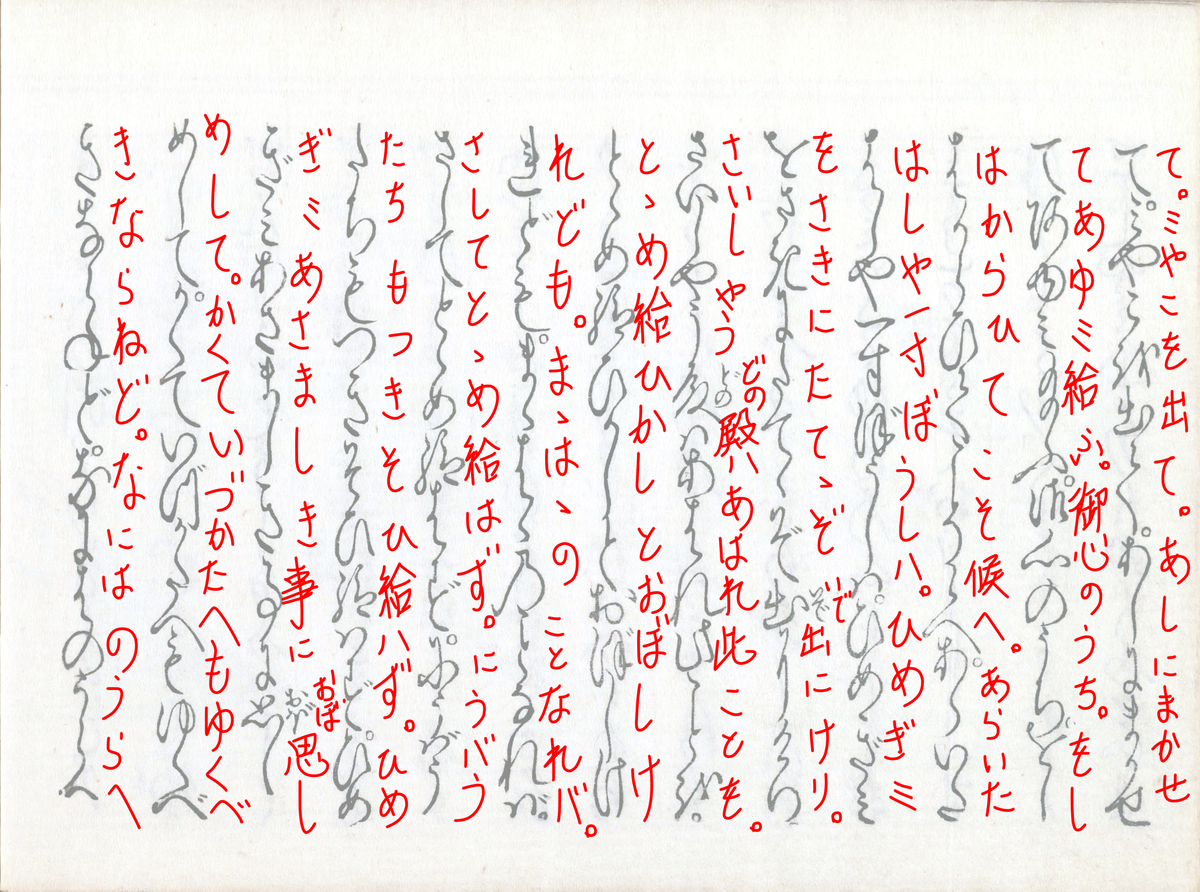 て。ミやこを出て。あしにまかせ
てあゆミ給ふ。御心のうち。をし
はからひてこそ候へ。あらいた
はしや一寸ぼうしハ。ひめぎミ
をさきにたてゝぞ出にけり。
いで
さいしやう殿ハあはれ此ことを。
どの
とゝめ給ひかしとおぼしけ
れども。まゝはゝのことなれバ。
さしてとゝめ給はず。にうバう
たちもつきそひ給ハず。ひめ
ぎミあさましき事に思し
おぼ
めして。かくていづかたへもゆくべ
きならねど。なにはのうらへ